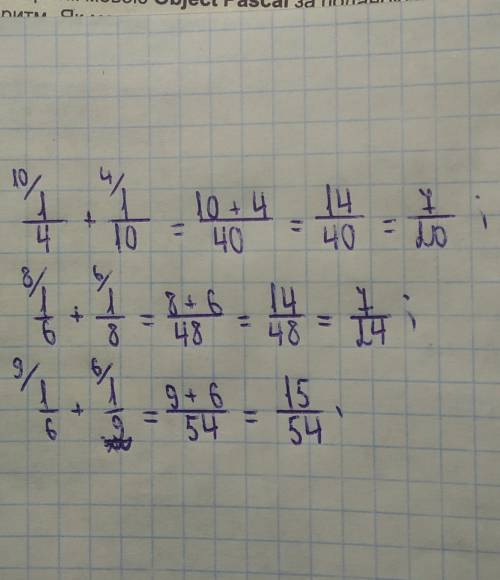 Object Pascal за
ритм. Як
10/ 1/4 + 4/ 1/10 = 10+4/40 = 14/40 = 7/20 ;
8/ 1/6 + 6/ 1/8 = 8+6/48 = 14/48 = 7/24 ;
9/ 1/6 + 6/ 1/9 = 9+6/54 = 15/54 ,